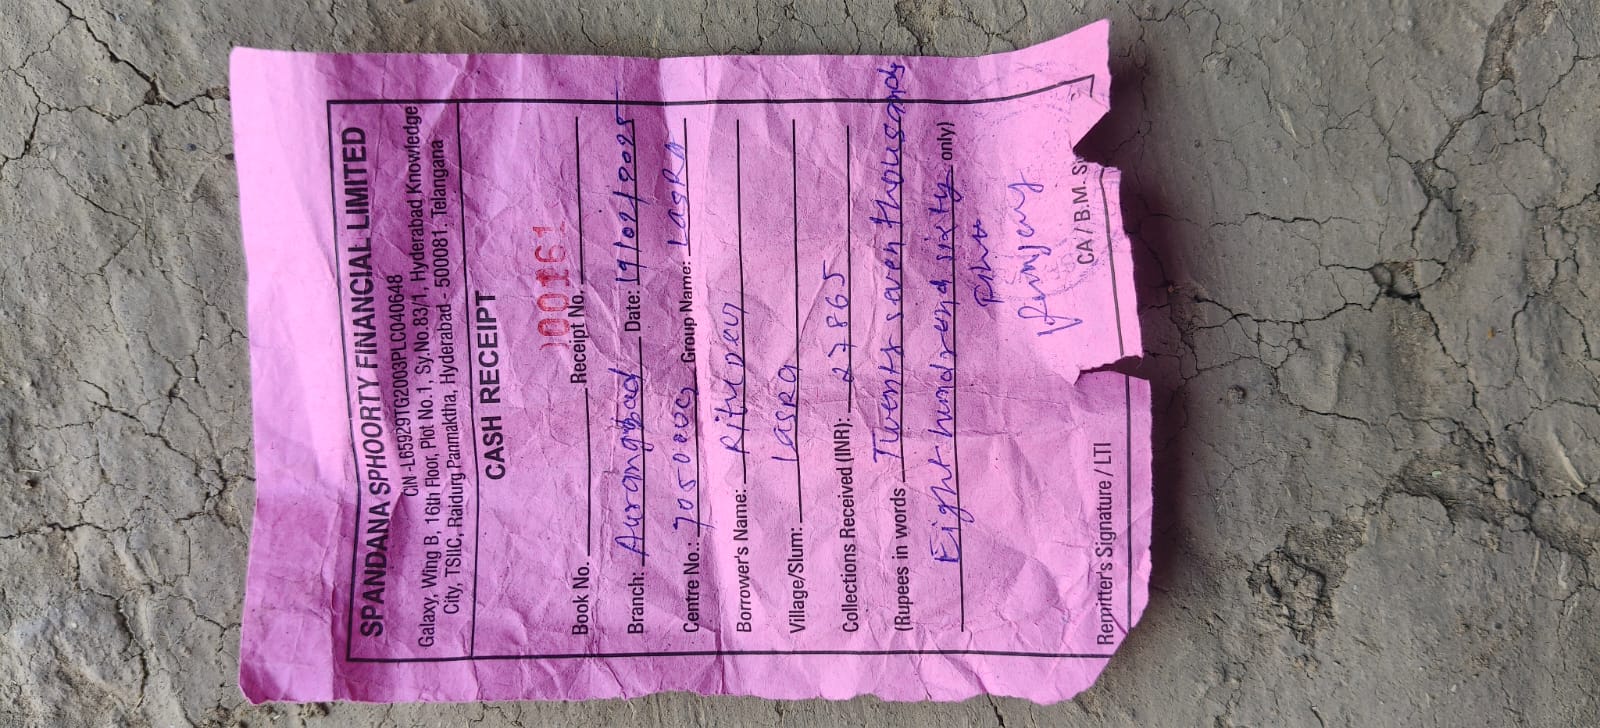 SPANDANA SPHOORTY FINANCIAL LIMITED
CIN -L65929TG2003PLC040648
Galaxy, Wing B, 16th Floor, Plot No.1, Sy.No.83/1, Hyderabad Knowledge
City, TSIIC, Raidurg Panmaktha, Hyderabad - 500081. Telangana
CASH RECEIPT
00161
Book No. Receipt No.
Branch: Aurangabad Date: 19/02/2025
Centre No.: Group Name: LasRA
Borrower's Name:
Village/Slum: LasRa
Collections Received (INR): 27865
(Rupees in words Twenty seven thousand
Eight hundred and sixty only)
Remitter's Signature / LTI CA / B.M. Si